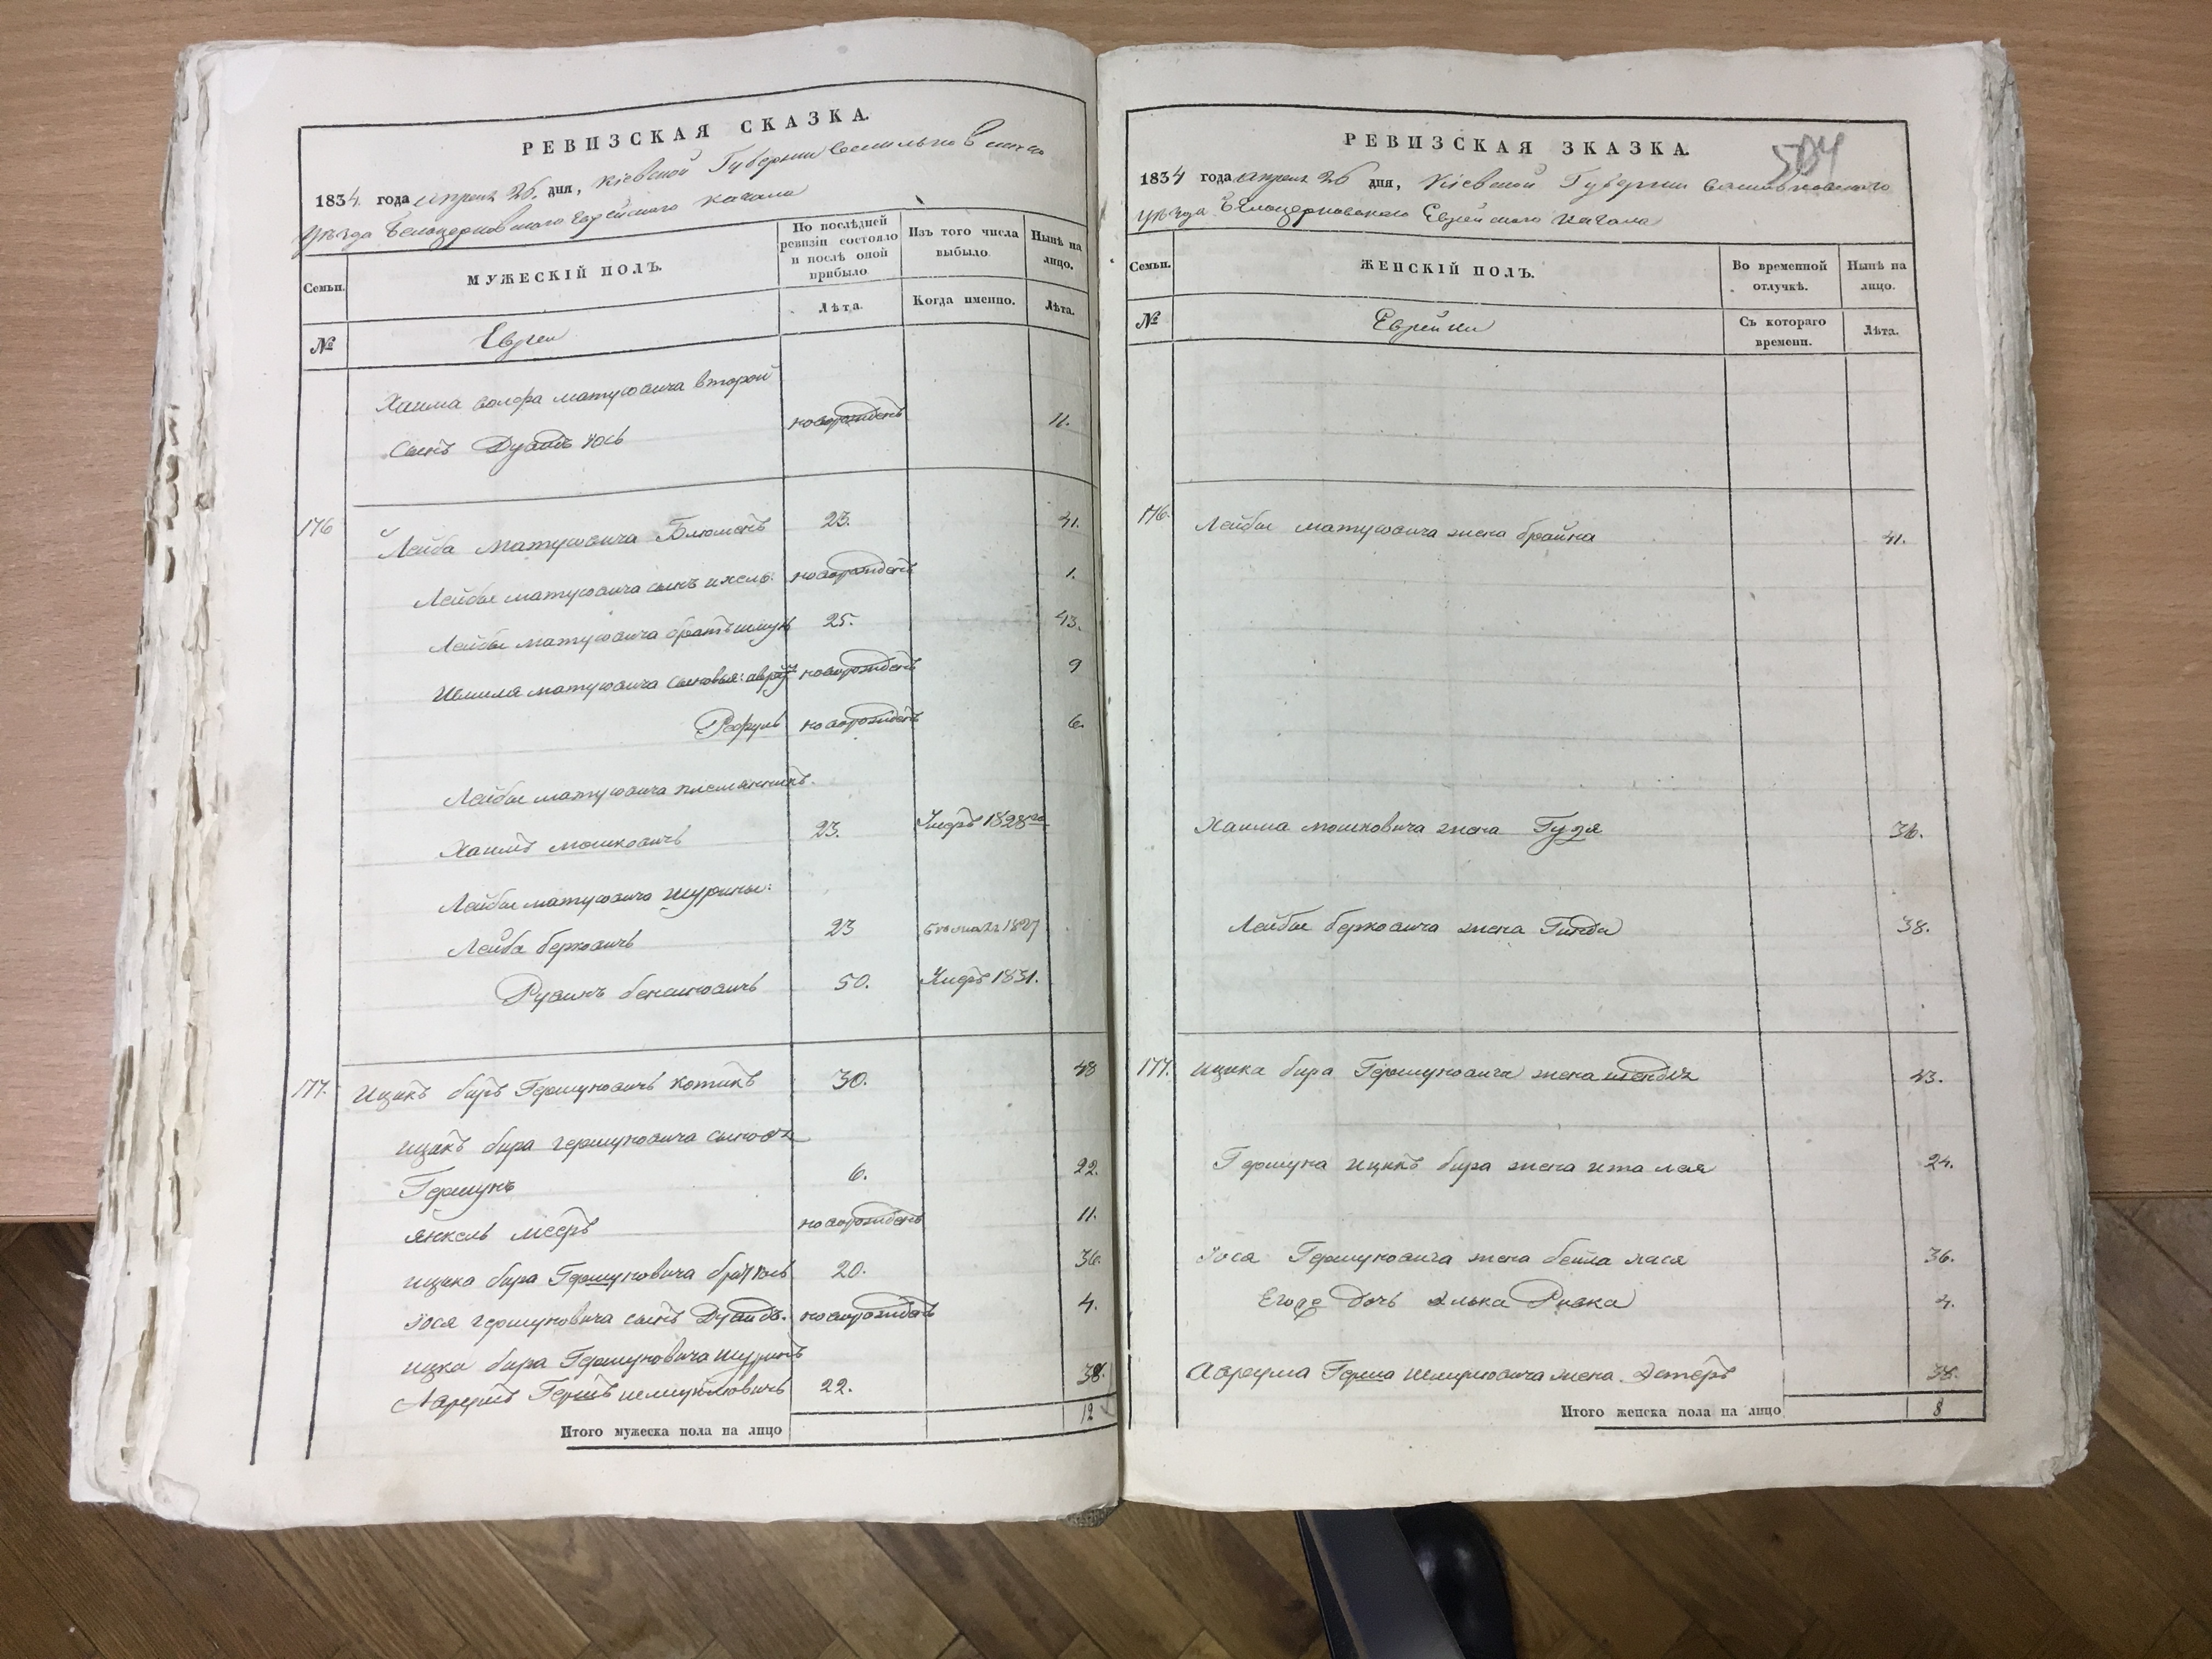 РЕВИЗСКАЯ СКАЗКА.
1834. года апреля 26. дня, Кіевской Губерніи Васильковского
уѣзда Белоцерковского Еврейского Кагала
Семьи.
МУЖЕСКІЙ ПОЛЪ.
По послѣдней ревизіи состояло и послѣ оной прибыло
Изъ того числа выбыло
Нынѣ на лицо.
№
Евреи
Лѣта.
Когда именно.
Лѣта.
Хаима Волфа Матусовича второй
сынъ Дувидъ Іось новорожденъ 11.
176 Лейба Матусовича Блюменъ 23. 41.
Лейбы Матусовича сынъ новорожденъ 1.
Лейбы Матусовича братъ 25. 43.
Шмиля Матусовича сыновья: новорожденъ 9
Рефуль новорожденъ 6.
Лейбы Матусовича племянникъ.
Хаимъ Мошковичъ 23. Умеръ 1828го
Лейбы Матусовича шурины:
Лейба Берковичъ 23 1827
Рувинъ 50. Умеръ 1831.
177. Ицикъ Биръ Гершуновичъ Котикъ 30. 48
Ицикъ Бира Гершуновича сыновья
Гершунъ 6. 22.
Янкель Мееръ новорожденъ 11.
Ицика Бира Гершуновича братъ Іось 20. 36.
Іося Гершуновича сынъ Дувидъ. новорожденъ 4.
Ицка Бира Гершуновича шуринъ
Аврумъ Гершъ 22. 38.
Итого мужеска пола на лицо 12
РЕВИЗСКАЯ ЗКАЗКА.
504
1834 года апреля 26 дня, Кіевской Губерніи Васильковского
уѣзда Бѣлоцерковского Еврейского Кагала
Семьи.
ЖЕНСКІЙ ПОЛЪ.
Во временной отлучкѣ.
Нынѣ на лицо.
№
Еврейки
Съ котораго времени.
Лѣта.
176. Лейбы Матусовича жена Брайна 41.
Хаима Мошковича жена Гузя 36.
Лейбы Берковича жена Гинда 38.
177. Ицика Бира Гершуновича жена Шендля 43.
Гершуна Ицикъ Бира жена Ита Лея 24.
Іося Гершуновича жена Бейла Лися 36.
Егоже дочь Элька Ривка 4.
Аврума Герша Шмулиовича жена Эстеръ 38.
Итого женска пола на лицо 8